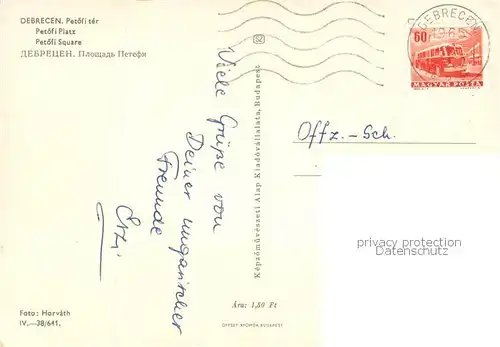 DEBRECEN. Petőfi tér
Petőfi Platz
Petőfi Square
ДЕБРЕЦЕН. Площадь Петефи
Viele Grüße von
Deiner ungarischer
Freunde
Erzsi
Foto: Horváth
IV.—38/641.
Képzőművészeti Alap Kiadóvállalata, Budapest
Ára: 1,50 Ft
OFFSET NYOMDA, BUDAPEST
DEBRECEN
60
MAGYAR POSTA
Offz.-Sch.
privacy protection
Datenschutz